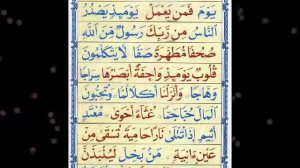 يَوْمَ فَمَنْ يَّعْمَلْ يَوْمَئِذٍ يَّصْدُرُ
النَّاسُ مِنْ رَّبِّكَ رَسُوْلٌ مِّنَ اللّٰهِ
صُحُفًا مُّطَهَّرَةً صَفًّا لَّا يَتَكَلَّمُوْنَ
قُلُوْبٌ يَّوْمَئِذٍ وَّاجِفَةٌ اَبْصَارُهَا سِرَاجًا
وَّهَّاجًا وَّاَنْزَلْنَا اَكْلًا لَّمًّا وَّتُحِبُّوْنَ
الْمَالَ حُبًّا جَمًّا غُثَآءً اَحْوٰى مُعْتَدٍ
اَثِيْمٍ اِذَا تُتْلٰى نَارًا حَامِيَةً تُسْقٰى مِنْ
عَيْنٍ اٰنِيَةٍ مَنْۢ بَخِلَ لَيُنْۢبَذَنَّ